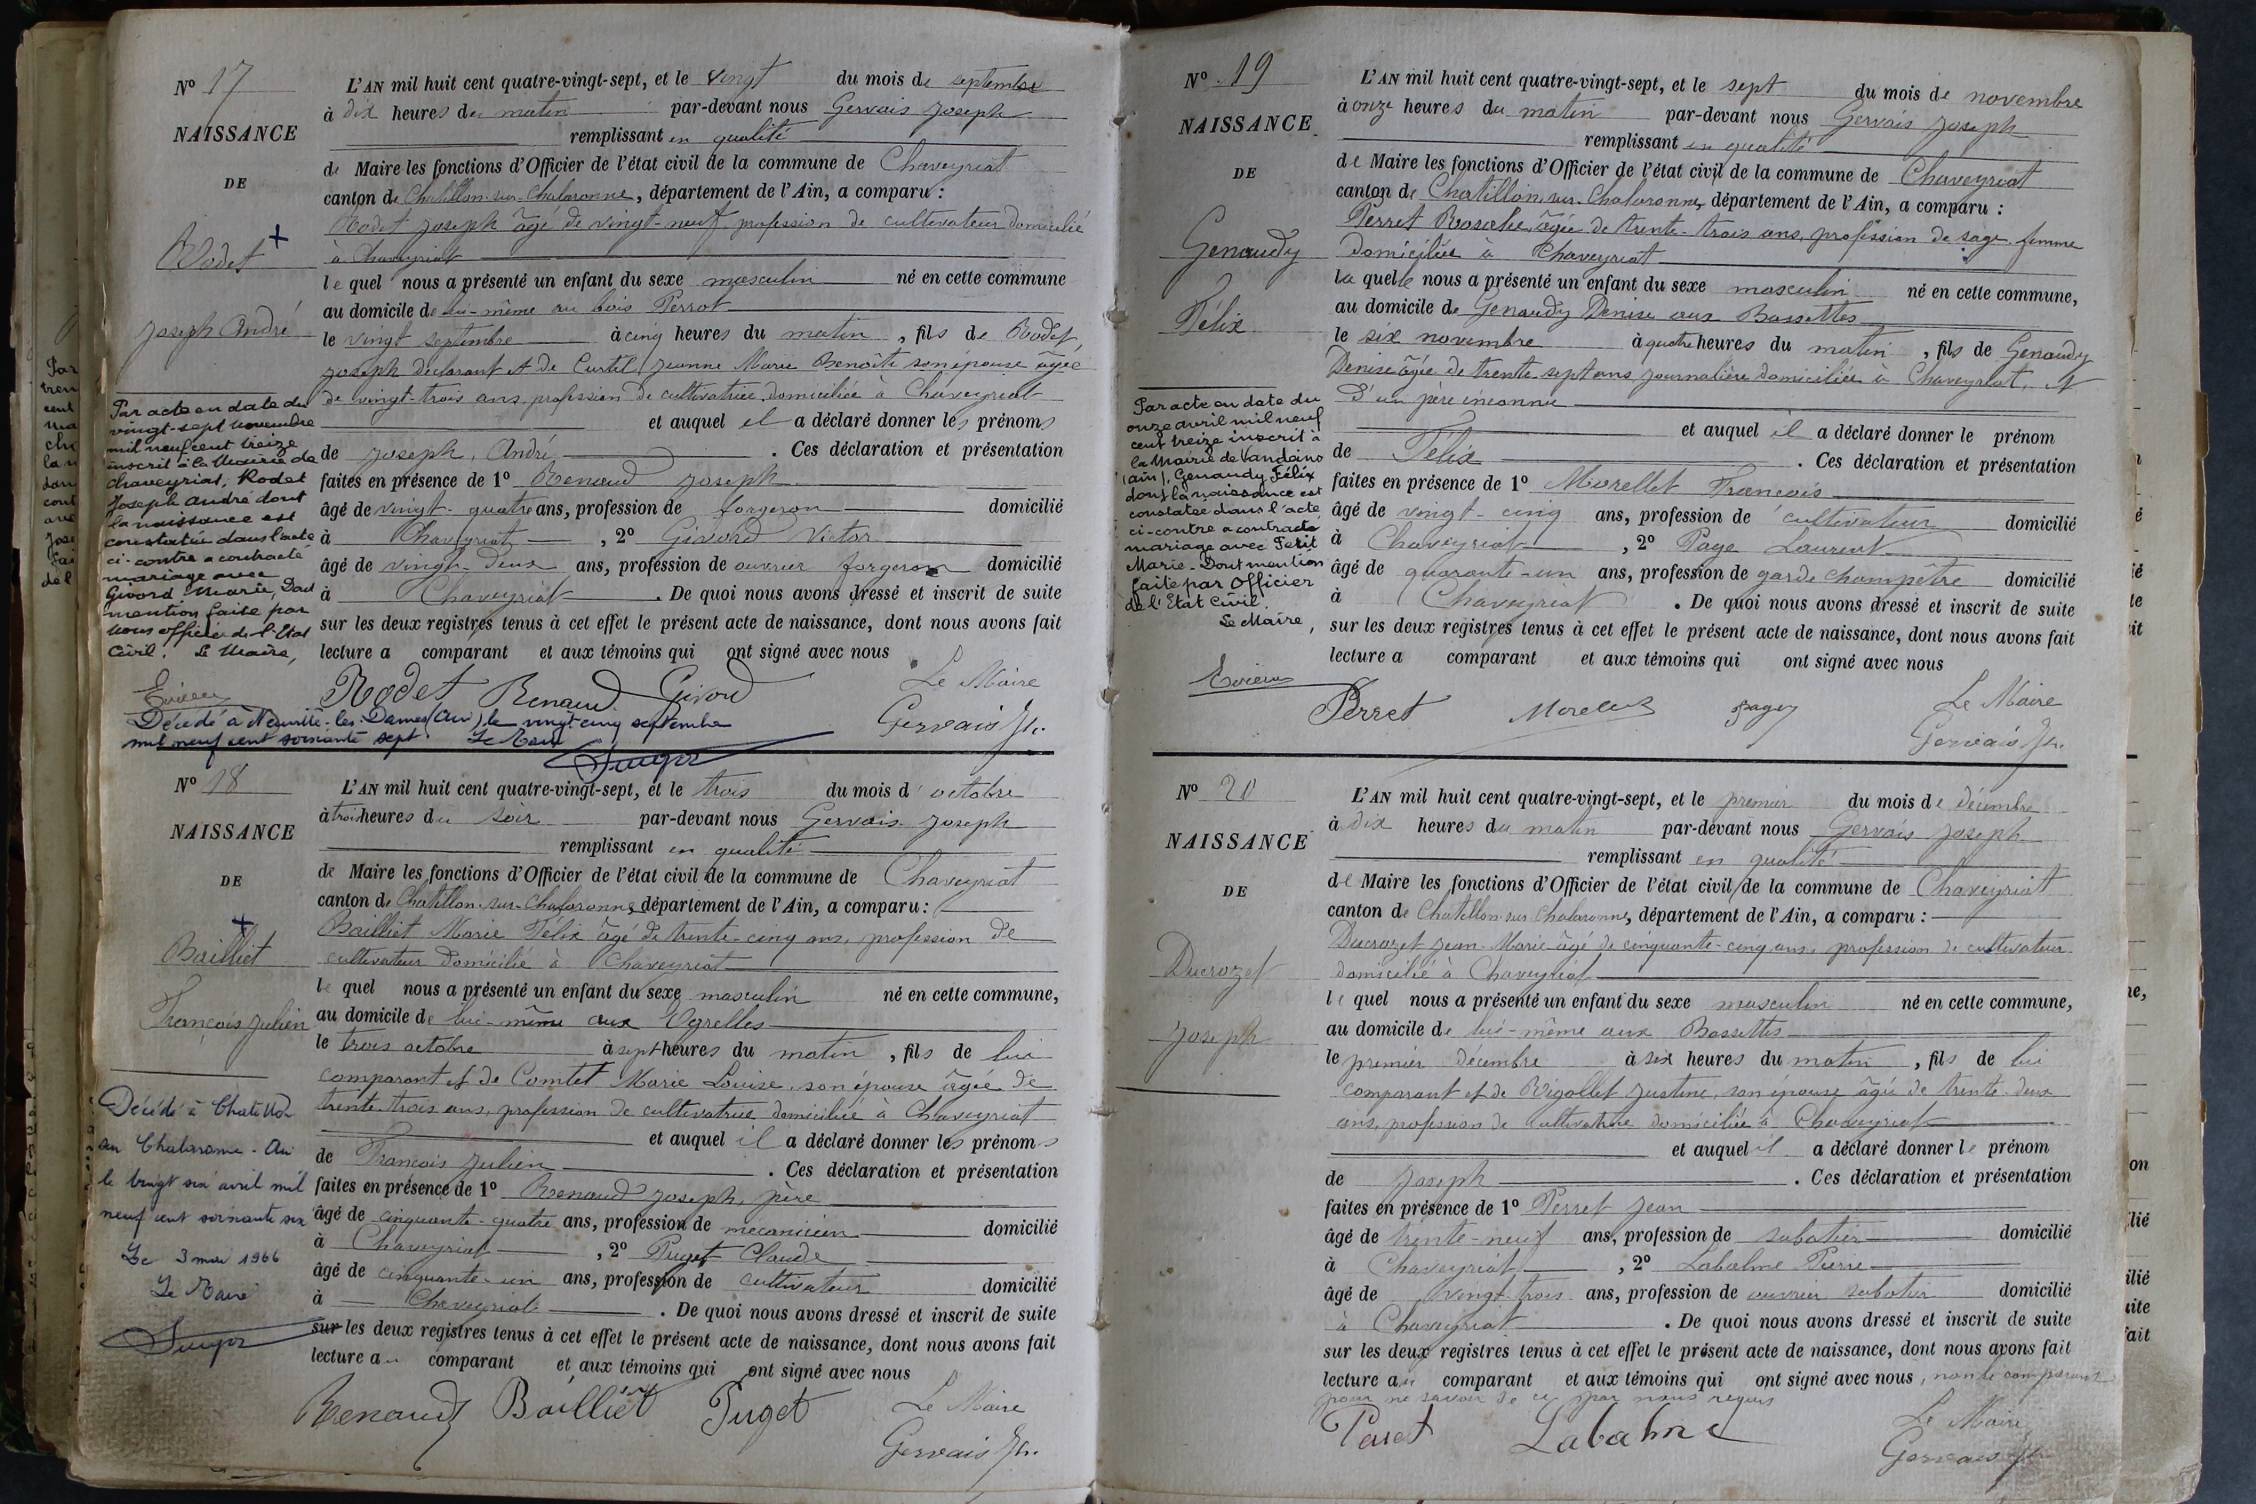 N° 17
NAISSANCE
DE
Rodet
Joseph André
L'AN mil huit cent quatre-vingt-sept, et le vingt du mois de septembre
à dix heures du matin par-devant nous Gervais Joseph
remplissant en qualité
de Maire les fonctions d'Officier de l'état civil de la commune de Chaveyriat
canton de Chatillon-sur-Chalaronne, département de l'Ain, a comparu :
Rodet Joseph âgé de vingt-neuf profession de cultivateur domicilié
à Chaveyriat
lequel nous a présenté un enfant du sexe masculin né en cette commune
au domicile de lui-même au bois Perrot
le vingt septembre à cinq heures du matin, fils de Rodet,
Joseph déclarant et de Curtil Jeanne Marie Benoîte son épouse âgée
de vingt-trois ans, profession de cultivatrice, domiciliée à Chaveyriat
et auquel il a déclaré donner les prénoms
de Joseph, André, . Ces déclaration et présentation
faites en présence de 1° Renaud Joseph
âgé de vingt-quatre ans, profession de forgeron domicilié
à Chaveyriat , 2° Givord Victor
âgé de vingt-deux ans, profession de ouvrier forgeron domicilié
à Chaveyriat . De quoi nous avons dressé et inscrit de suite
sur les deux registres tenus à cet effet le présent acte de naissance, dont nous avons fait
lecture a comparant et aux témoins qui ont signé avec nous
Rodet Renaud Givord Le Maire
Gervais Jh.
Par acte en date du
vingt-sept novembre
mil neuf cent treize
inscrit à la Mairie de
Chaveyriat, Rodet
Joseph André dont
la naissance est
constatée dans l'acte
ci-contre a contracté
mariage avec
Givord Marie, Dont
mention faite par
nous officier de l'Etat
Civil. Le Maire,
Décédé à Neuville-les-Dames (Ain) le vingt-cinq septembre
mil neuf cent soixante sept. Le Maire
N° 18
NAISSANCE
DE
Bailliet
François Julien
L'AN mil huit cent quatre-vingt-sept, et le trois du mois d'octobre
à trois heures du soir par-devant nous Gervais Joseph
remplissant en qualité
de Maire les fonctions d'Officier de l'état civil de la commune de Chaveyriat
canton de Chatillon-sur-Chalaronne, département de l'Ain, a comparu :
Bailliet Marie Félix âgé de trente-cinq ans, profession de
cultivateur domicilié à Chaveyriat
lequel nous a présenté un enfant du sexe masculin né en cette commune,
au domicile de lui-même aux
le trois octobre à sept heures du matin, fils de lui
comparant et de Comtet Marie Louise, son épouse âgée de
trente-trois ans, profession de cultivatrice domiciliée à Chaveyriat
et auquel il a déclaré donner les prénoms
de François Julien . Ces déclaration et présentation
faites en présence de 1° Renaud Joseph, père
âgé de cinquante-quatre ans, profession de mécanicien domicilié
à Chaveyriat , 2° Puget Claude
âgé de cinquante-un ans, profession de cultivateur domicilié
à Chaveyriat . De quoi nous avons dressé et inscrit de suite
sur les deux registres tenus à cet effet le présent acte de naissance, dont nous avons fait
lecture au comparant et aux témoins qui ont signé avec nous
Renaud Bailliet Puget Le Maire
Gervais Jh.
Décédé à Chatillon
sur Chalaronne - Ain
le vingt six avril mil
neuf cent soixante six
Le 3 mai 1966
Le Maire
N° 19
NAISSANCE
DE
Genaudy
Félix
L'AN mil huit cent quatre-vingt-sept, et le sept du mois de novembre
à onze heures du matin par-devant nous Gervais Joseph
remplissant en qualité
de Maire les fonctions d'Officier de l'état civil de la commune de Chaveyriat
canton de Chatillon-sur-Chalaronne, département de l'Ain, a comparu :
Perret Rosalie âgée de trente-trois ans, profession de sage-femme
domiciliée à Chaveyriat
laquelle nous a présenté un enfant du sexe masculin né en cette commune,
au domicile de Genaudy Denise aux Bassettes
le six novembre à quatre heures du matin, fils de Genaudy
Denise âgée de trente-sept ans, journalière domiciliée à Chaveyriat, et
d'un père inconnu
et auquel il a déclaré donner le prénom
de Félix . Ces déclaration et présentation
faites en présence de 1° Morellet François
âgé de vingt-cinq ans, profession de cultivateur domicilié
à Chaveyriat , 2° Page Laurent
âgé de quarante-un ans, profession de garde champêtre domicilié
à Chaveyriat . De quoi nous avons dressé et inscrit de suite
sur les deux registres tenus à cet effet le présent acte de naissance, dont nous avons fait
lecture a comparant et aux témoins qui ont signé avec nous
Perret Morellet Page Le Maire
Gervais Jh.
Par acte en date du
onze avril mil neuf
cent treize inscrit à
la Mairie de Vandeins
(Ain), Genaudy Félix
dont la naissance est
constatée dans l'acte
ci-contre a contracté
mariage avec Petit
Marie - Dont mention
faite par Officier
de l'Etat Civil.
Le Maire,
N° 20
NAISSANCE
DE
Ducrozet
Joseph
L'AN mil huit cent quatre-vingt-sept, et le premier du mois de décembre
à dix heures du matin par-devant nous Gervais Joseph
remplissant en qualité
de Maire les fonctions d'Officier de l'état civil de la commune de Chaveyriat
canton de Chatillon-sur-Chalaronne, département de l'Ain, a comparu :
Ducrozet Jean-Marie âgé de cinquante-cinq ans, profession de cultivateur
domicilié à Chaveyriat
lequel nous a présenté un enfant du sexe masculin né en cette commune,
au domicile de lui-même aux Bassettes
le premier décembre à six heures du matin, fils de lui
comparant et de Rigollet Justine, son épouse âgée de trente-deux
ans, profession de cultivatrice domiciliée à Chaveyriat
et auquel il a déclaré donner le prénom
de Joseph . Ces déclaration et présentation
faites en présence de 1° Perret Jean
âgé de trente-neuf ans, profession de sabotier domicilié
à Chaveyriat , 2° Labalme Pierre
âgé de vingt-trois ans, profession de ouvrier sabotier domicilié
à Chaveyriat . De quoi nous avons dressé et inscrit de suite
sur les deux registres tenus à cet effet le présent acte de naissance, dont nous avons fait
lecture au comparant et aux témoins qui ont signé avec nous, non le comparant
pour ne savoir de ce par nous requis
Perret Labalme Le Maire
Gervais Jh.